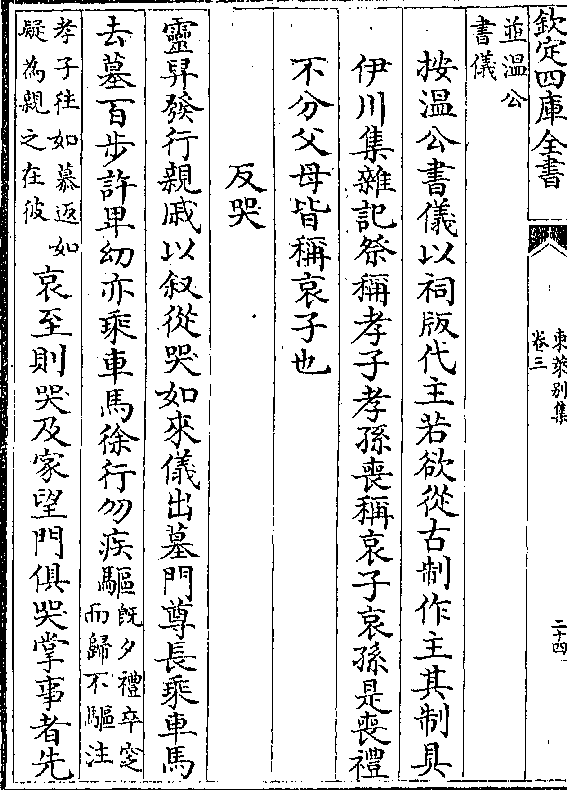 欽定四庫全書
東萊别集
卷三
二十四
並溫公
書儀
按溫公書儀以祠版代主若欲從古制作主其制具
伊川集雜記祭稱孝子孝孫喪稱哀子哀孫是喪禮
不分父母皆稱哀子也
反哭
靈舁發行親戚以叙從哭如來儀出墓門尊長乘車馬
去墓百步許卑幼亦乘車馬徐行勿疾驅
既夕禮卒窆
而歸不驅注
孝子往如慕返如
疑為親之在彼
哀至則哭及家望門俱哭掌事者先